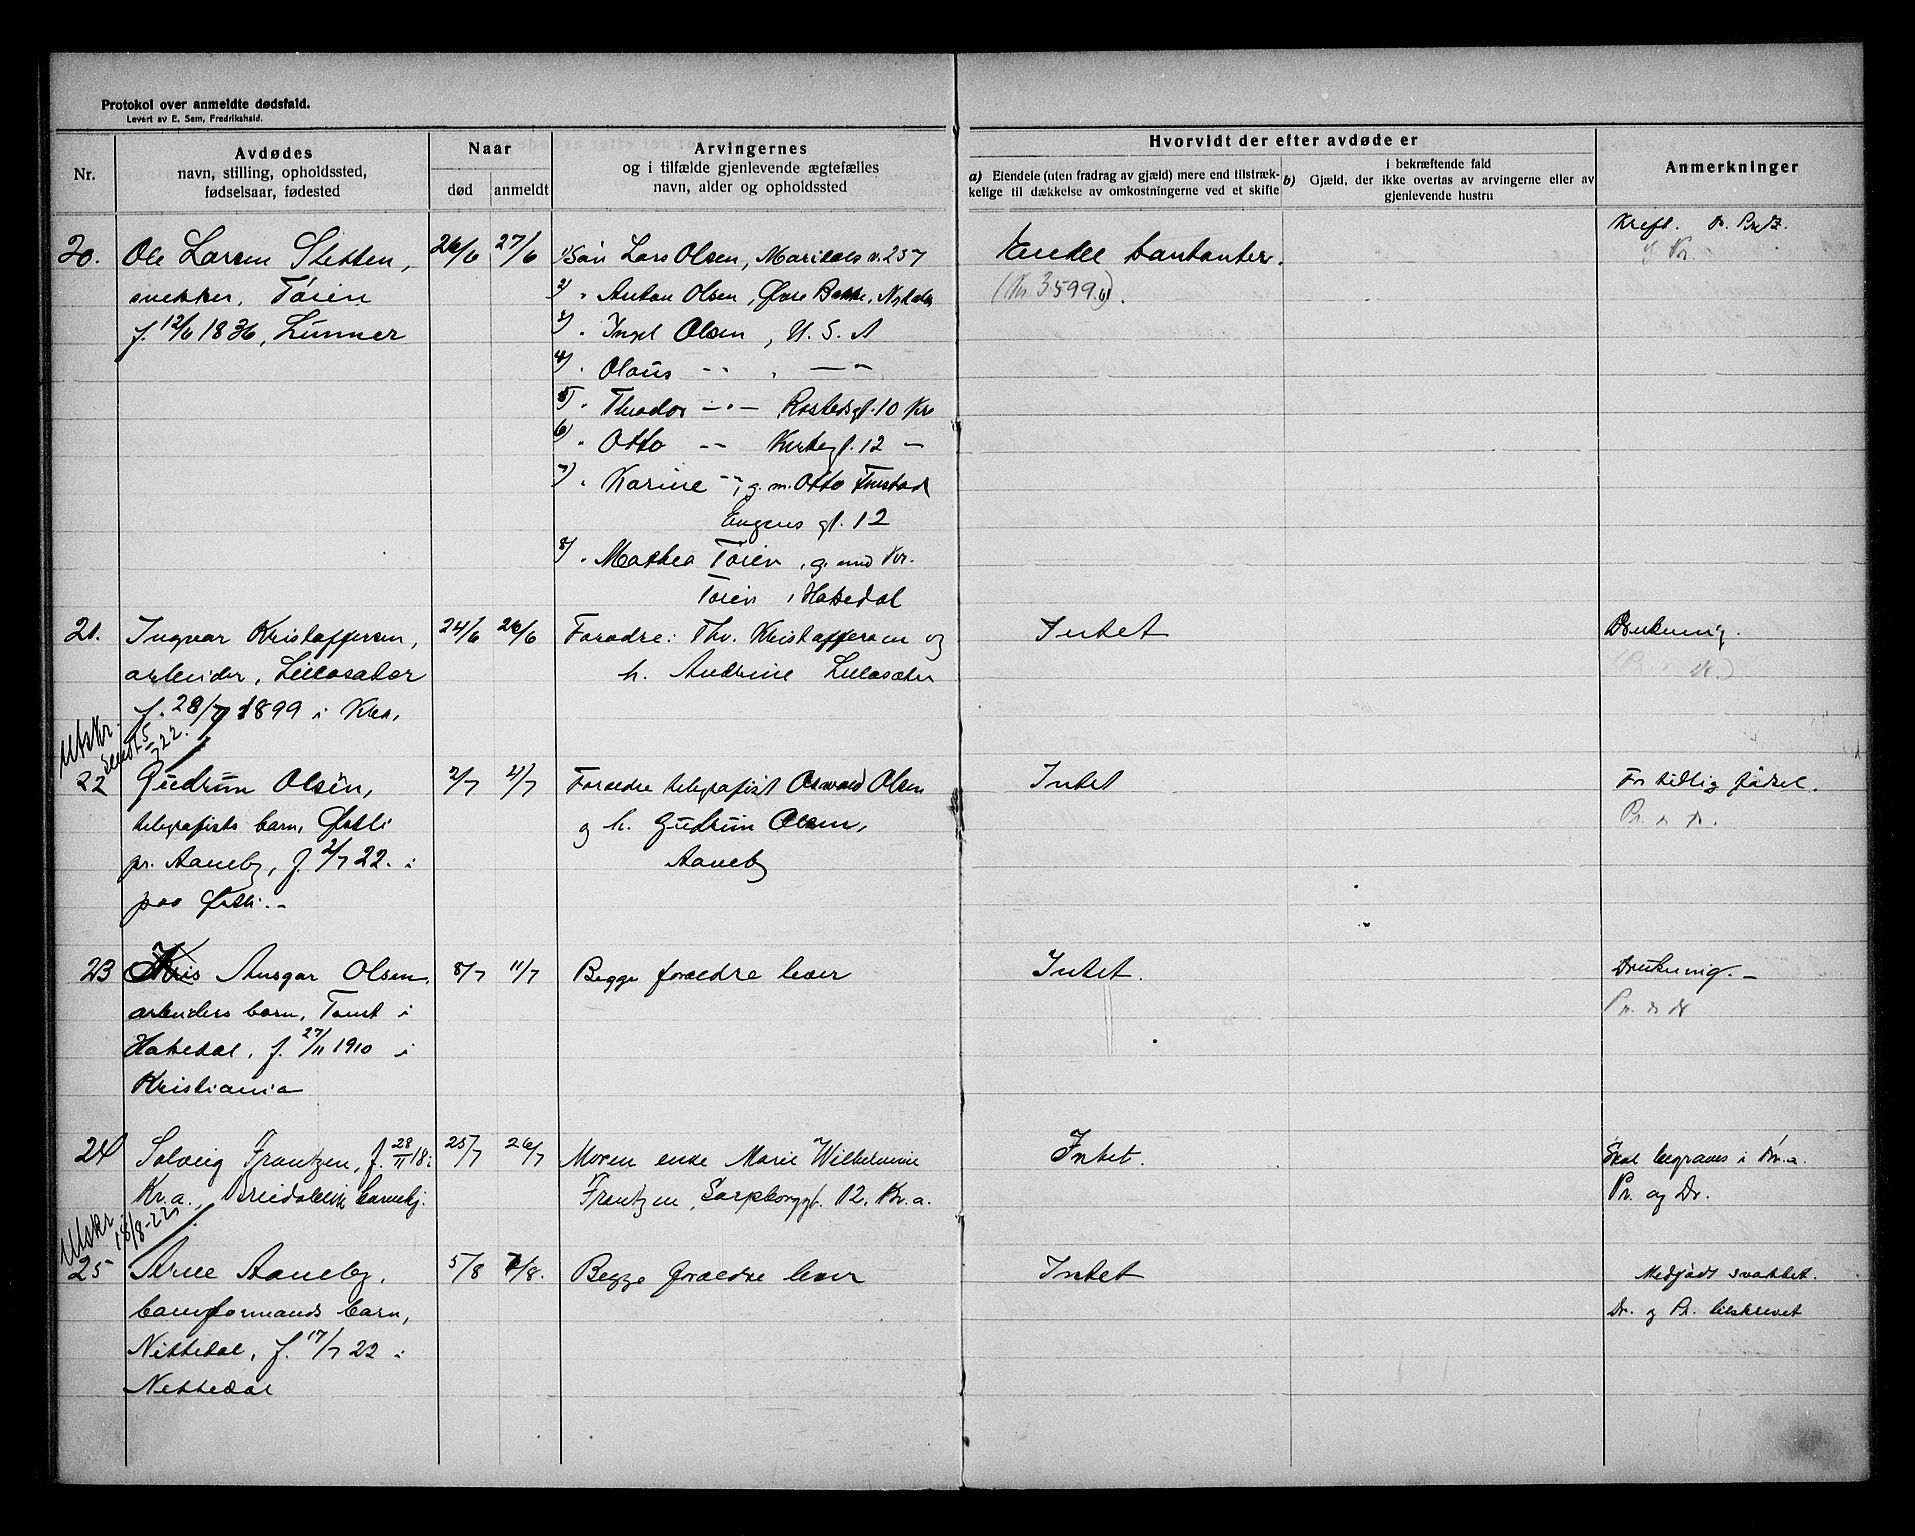 Protokol over anmeldte dødsfald.
Levert av E. Sem, Fredrikshald.
Nr.
Avdødes
navn, stilling, opholdssted,
fødselsaar, fødested
Naar
død
anmeldt
Arvingernes
og i tilfælde gjenlevende ægtefælles
navn, alder og opholdssted
Hvorvidt der efter avdøde er
a) Eiendele (uten fradrag av gjæld) mere end tilstræk-
kelige til dækkelse av omkostningerne ved et skifte
i bekræftende fald
b) Gjæld, der ikke overtas av arvingerne eller av
gjenlevende hustru
Anmerkninger
20.
Ole Larsen Sletten,
snekker, Tøien
f. 12/6 1836, Lunner
26/6
27/6
1) Søn Lars Olsen, Maridals v. 257
2) " Anton Olsen, Øvre Bakke, Nitedal
3) " Ingel Olsen, U. S. A
4) " Olaus -"- , -"-
5) " Theodor -"- Rostedsgt. 10 Kra
6) " Otto -"- Kirkegt. 12 -
7) " Karine -"-, g. m. Otto
Eugens gt. 12
8) " Mathea Tøien, g. med Kr.
Tøien, Hakedal
Endel kontanter.
(Kr 3599.61).
Kreft. Dr.
21.
Ingvar Kristoffersen,
arbeider, Lillosæter
f. 28/7 1899 i Kra.
24/6
26/6
Forædre: Thv. Kristoffersen og
h. Andrine Lillosæter
Intet
Drukning.
Utskr.
sendt 5/7 22.
22
Gudrun Olsen,
telegrafists barn, Østli
pr. Aaneby, f. 2/7 22. i
paa Østli.-
2/7
4/7
Forældre telegrafist Oswald Olsen
og h. Gudrun Olsen,
Aaneby
Intet
For tidlig fødsel.
Pr. o dr.
23
Kris Ansgar Olsen,
arbeiders barn, Tomt i
Hakedal, f. 27/11 1910 i
Kristiania
8/7
11/7
Begge forældre lever
Intet.
Drukning.-
Pr. o dr
24
Solveig Frantzen, f. 28/11 18 i
Kr.a., Breidablik barnehj.
25/7
26/7
Moren enke Marie Wilhelmine
Frantzen, Sarpsborggt. 12, Kr.a.
Intet.
Skal begraves i Kr.a.
Pr. og Dr.
Utskr.
18/8-22.
25
Arne Aaneby,
baneformands barn,
Nittedal, f. 17/7 22 i
Nittedal
5/8
7/8.
Begge forældre lever
Intet
Medfødt svakhet.
Dr. og Pr. tilskrevet